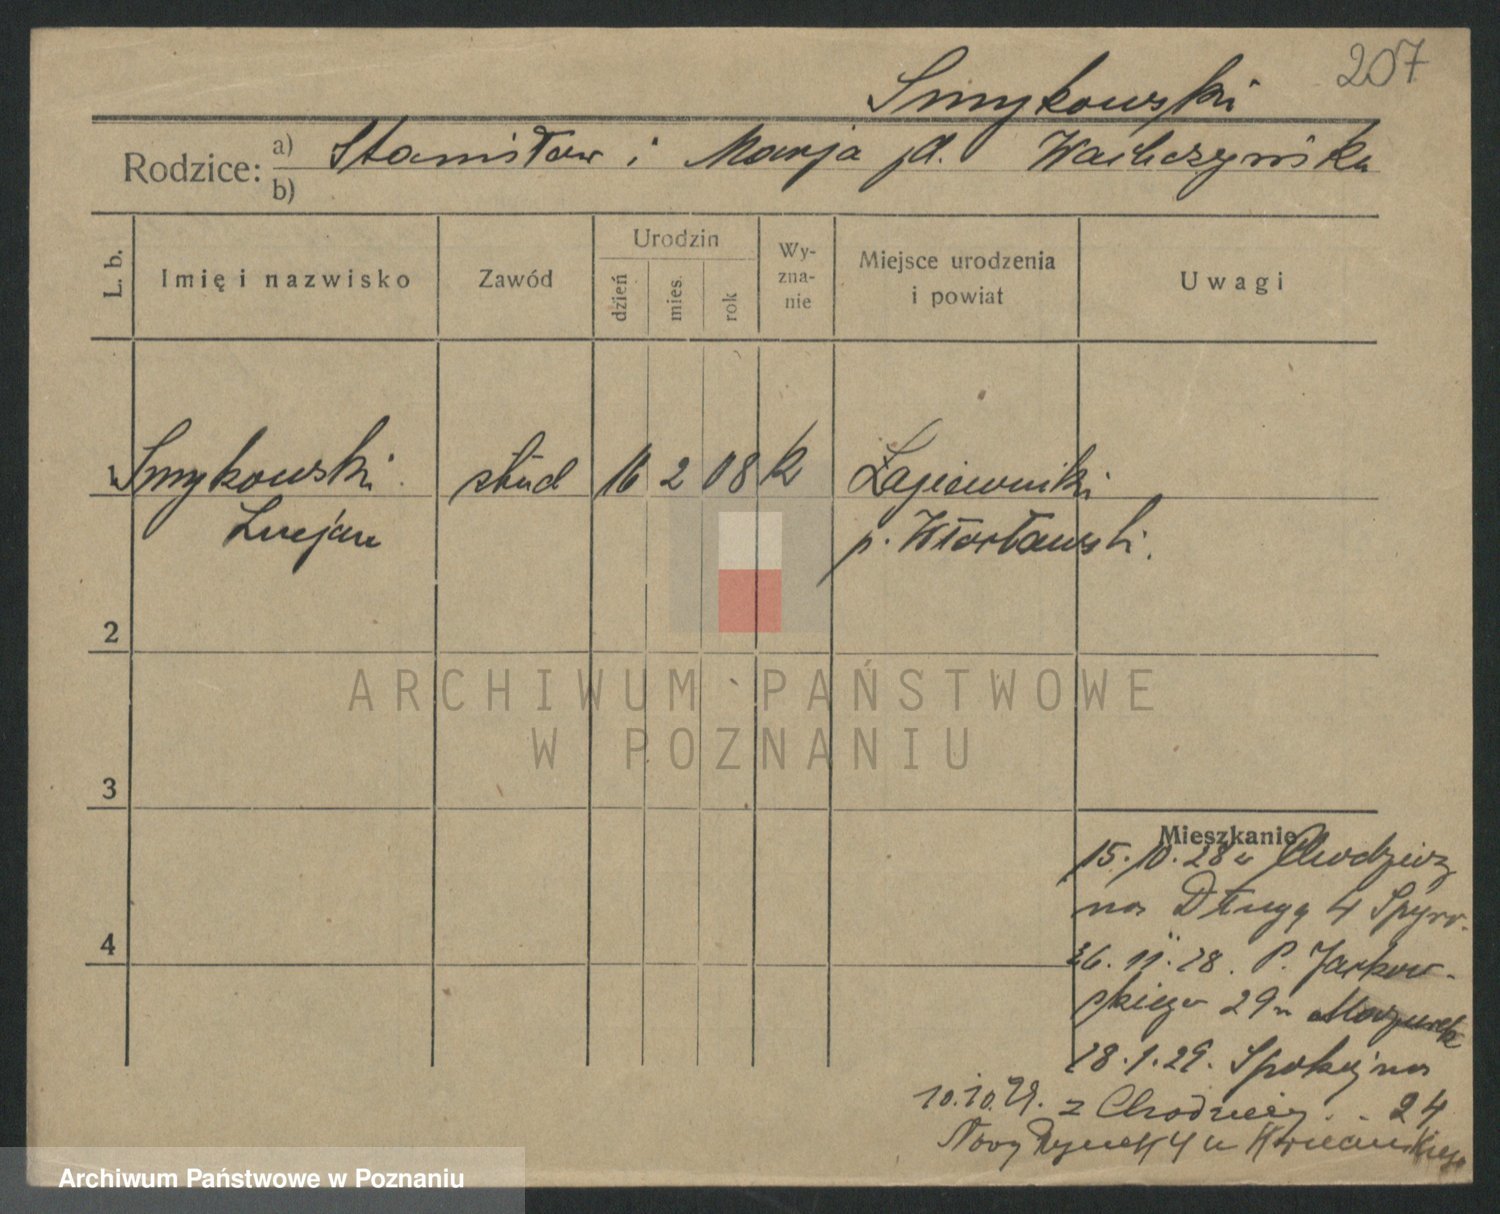 207
Smykowski
Rodzice: a) Stanisław i Marja
b)
L. b.
Imię i nazwisko
Zawód
Urodzin
dzień
mies.
rok
Wy-
zna-
nie
Miejsce urodzenia
i powiat
Uwagi
1 Smykowski stud 16 2 08 k Łagiewniki
Lucjan p. Włocławski.
2
3
4
Mieszkanie
15.10.28 Chodzież
na Długą 4
26.11.28. P. Jarkow-
skiego 29 Mazurek
18.1.29. Spokojna
24
10.10.29. z Chodzieży
Nowy Rynek 4 u
ARCHIWUM PAŃSTWOWE
W POZNANIU
Archiwum Państwowe w Poznaniu